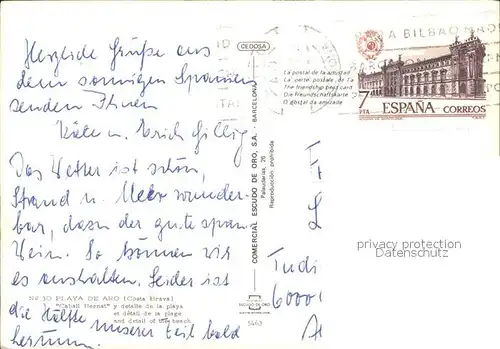 Herzliche Grüße aus
dem sonnigen Spanien
senden Ihnen
Käte u. Erich
Das Wetter ist schön,
Strand u. Meer wunder-
bar, dazu der gute span.
Wein. So können wir
es aushalten. Leider ist
die Hälfte unserer Zeit bald
herum.
Nº 10 PLAYA DE ARO (Costa Brava)
"Cabell Bernat" y detalle de la playa
et détail de la plage
and detail of the beach
CEDOSA
COMERCIAL ESCUDO DE ORO, S.A. - BARCELONA
Palaudarias, 26
Reproducción prohibida
ESCUDO DE ORO
5463
La postal de la amistad
La carte postale de l'a
The friendship post card
Die Freundschaftskarte
O postal da amizade
A BILBAO
7
PTA
ESPAÑA CORREOS
F
L
Indi
6000
A
privacy protection
Datenschutz